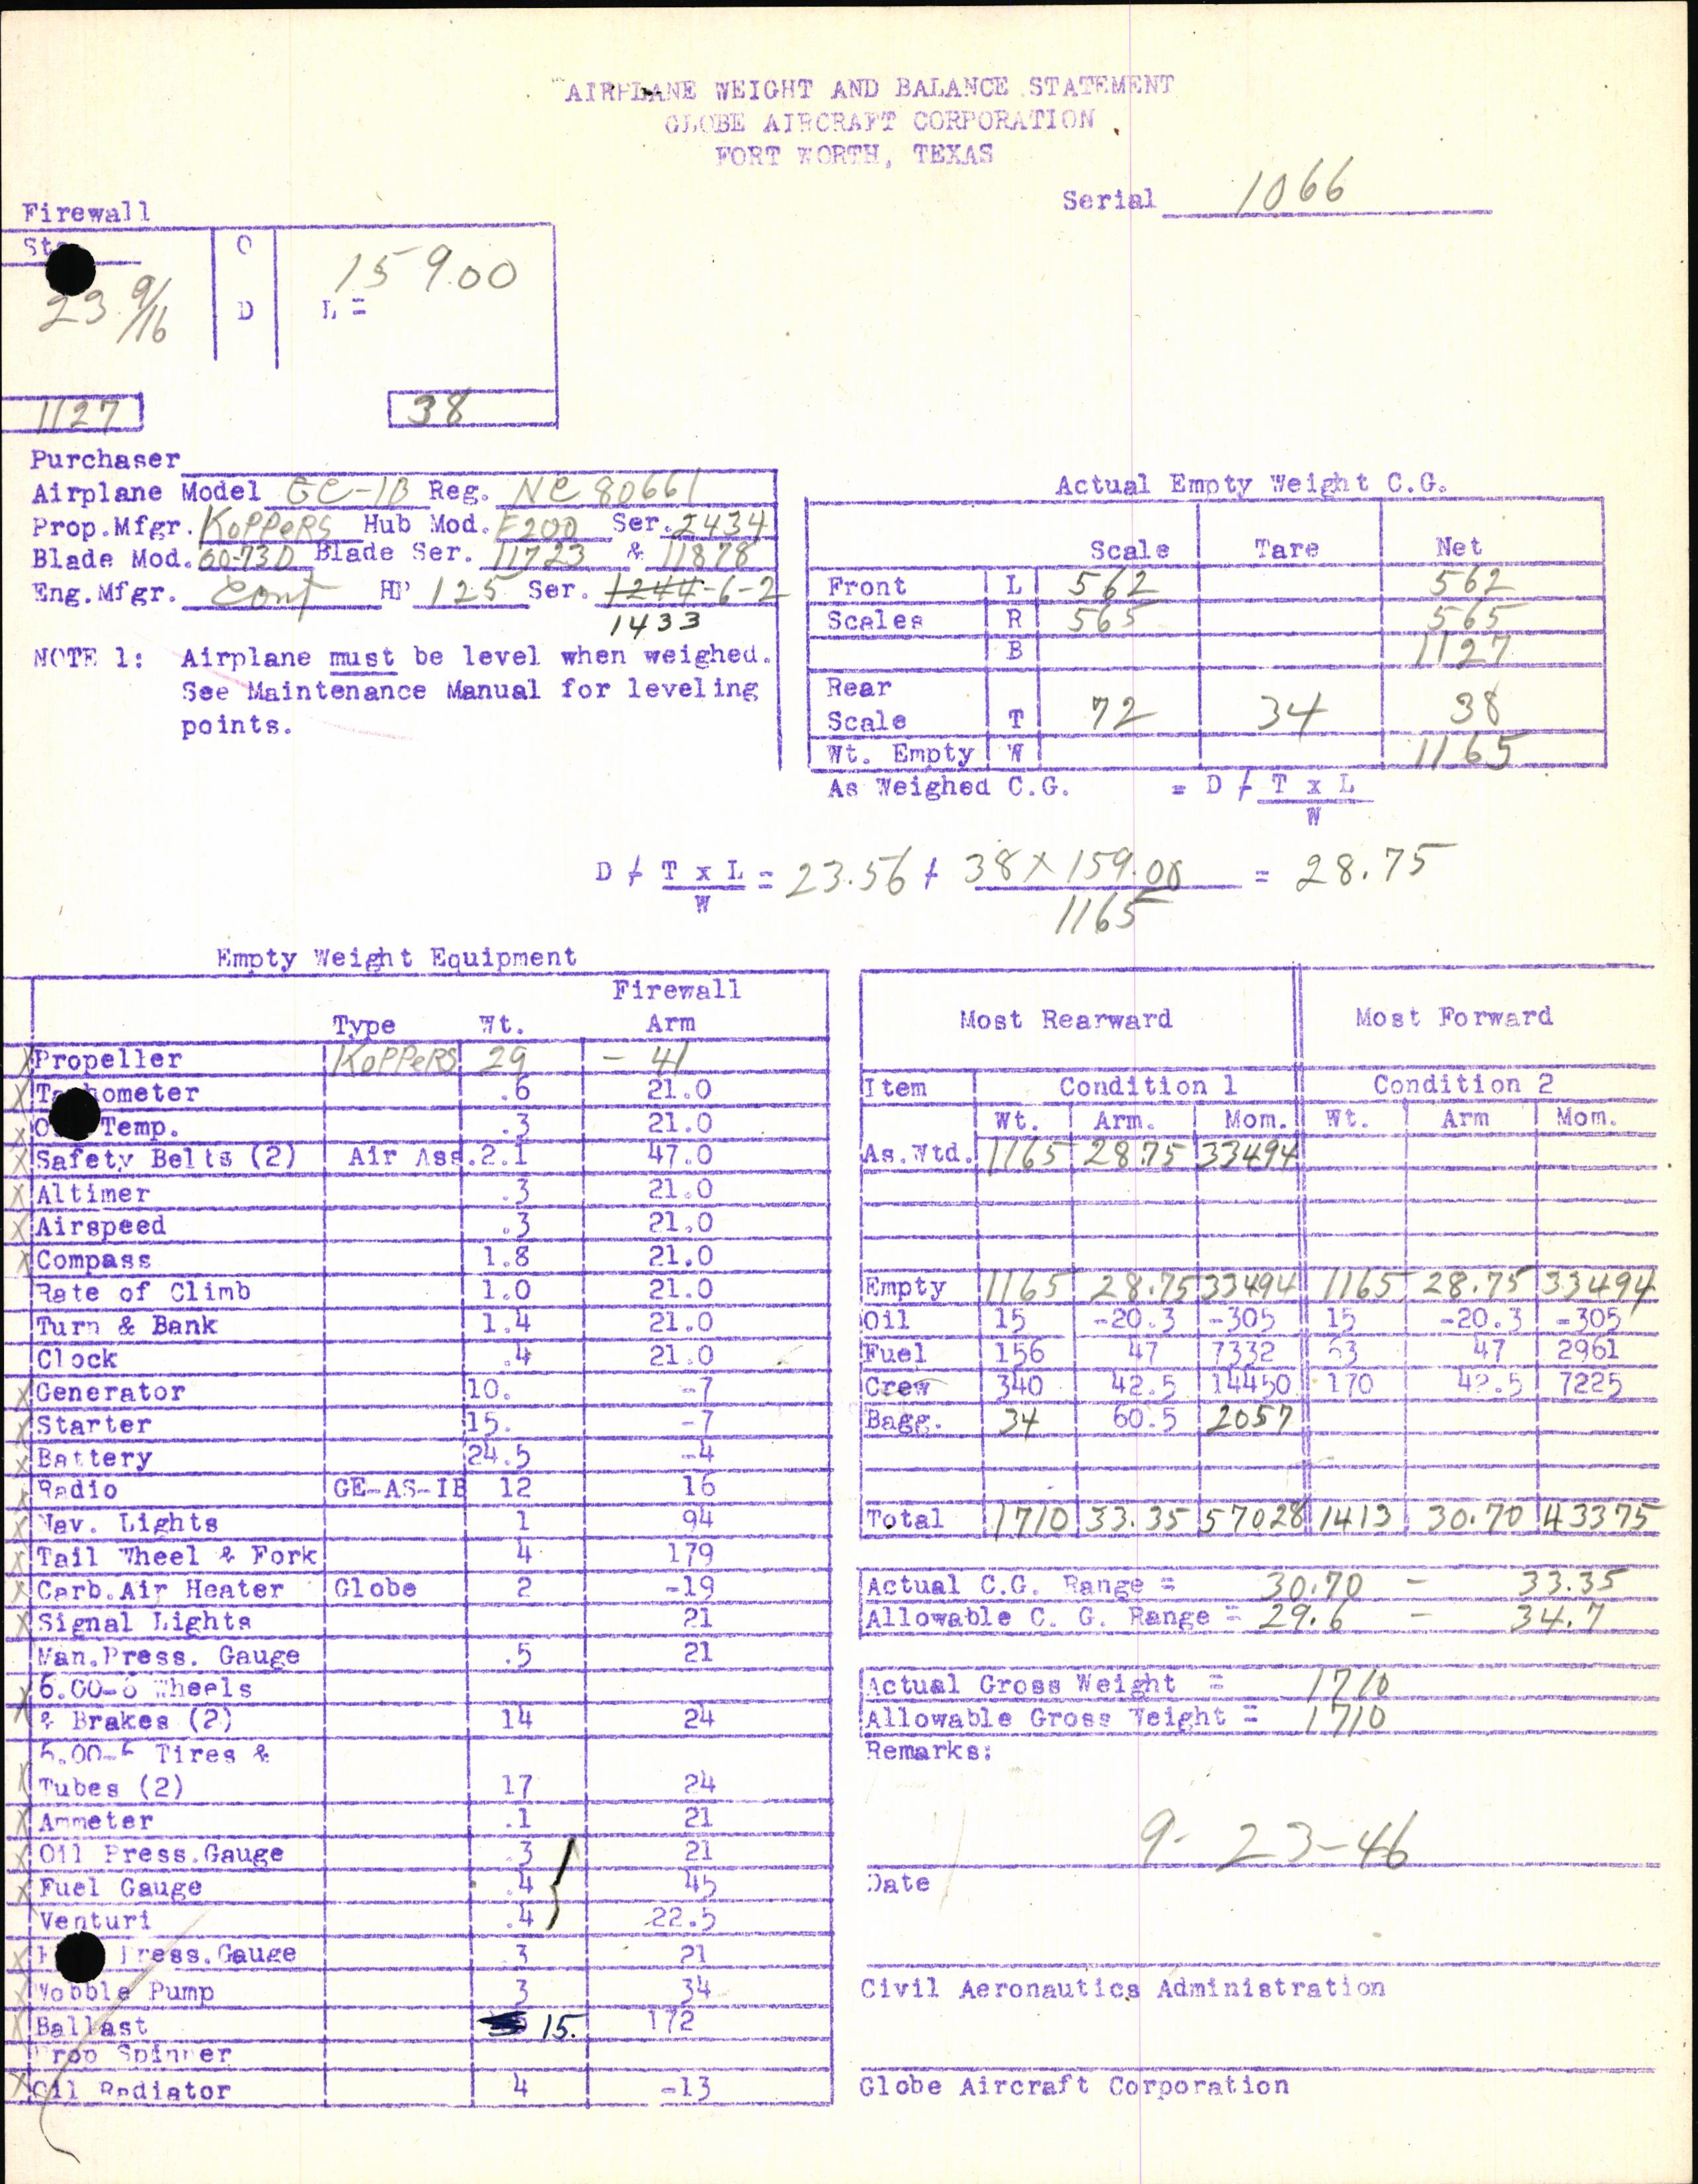 AIRPLANE WEIGHT AND BALANCE STATEMENT
GLOBE AIRCRAFT CORPORATION
FORT WORTH, TEXAS
Serial 1066
Firewall
C
D
23 9/16
L = 159.00
1127
38
Purchaser
Airplane Model GC-1B Reg. NC 80661
Prop.Mfgr. KOPPERS Hub Mod. F200 Ser. 2434
Blade Mod. 60-73D Blade Ser. 11723 & 11878
Eng.Mfgr. Cont HP 125 Ser. 1244-6-2
1433
NOTE 1: Airplane must be level when weighed.
See Maintenance Manual for leveling
points.
Actual Empty Weight C.G.
Scale Tare Net
Front L 562 562
Scales R 565 565
B 1127
Rear
Scale T 72 34 38
Wt. Empty W 1165
As Weighed C.G. = D / T x L
W
D / T x L = 23.56 + 38 x 159.00 = 28.75
W 1165
Empty Weight Equipment
Firewall
Type Wt. Arm
X Propeller KOPPERS 29 - 41
X Tachometer .6 21.0
X Temp. .3 21.0
X Safety Belts (2) Air Ass. 2.1 47.0
X Altimer .3 21.0
X Airspeed .3 21.0
X Compass 1.8 21.0
Rate of Climb 1.0 21.0
Turn & Bank 1.4 21.0
Clock .4 21.0
X Generator 10. -7
X Starter 15. -7
X Battery 24.5 -4
X Radio GE-AS-1B 12 16
X Nav. Lights 1 94
X Tail Wheel & Fork 4 179
X Carb.Air Heater Globe 2 -19
X Signal Lights 21
Man.Press. Gauge .5 21
6.00-6 Wheels
X & Brakes (2) 14 24
6.00-6 Tires &
X Tubes (2) 17 24
X Ammeter .1 21
X Oil Press.Gauge .3 21
X Fuel Gauge .4 45
Venturi .4 22.5
X Press.Gauge .3 21
X Wobble Pump 3 34
X Ballast 15. 172
Prop Spinner
X Oil Radiator 4 -13
Most Rearward Most Forward
Item Condition 1 Condition 2
Wt. Arm. Mom. Wt. Arm Mom.
As.Wtd. 1165 28.75 33494
Empty 1165 28.75 33494 1165 28.75 33494
Oil 15 -20.3 -305 15 -20.3 -305
Fuel 156 47 7332 63 47 2961
Crew 340 42.5 14450 170 42.5 7225
Bagg. 34 60.5 2057
Total 1710 33.35 57028 1413 30.70 43375
Actual C.G. Range = 30.70 - 33.35
Allowable C. G. Range = 29.6 - 34.7
Actual Gross Weight = 1710
Allowable Gross Weight = 1710
Remarks:
9-23-46
Date
Civil Aeronautics Administration
Globe Aircraft Corporation